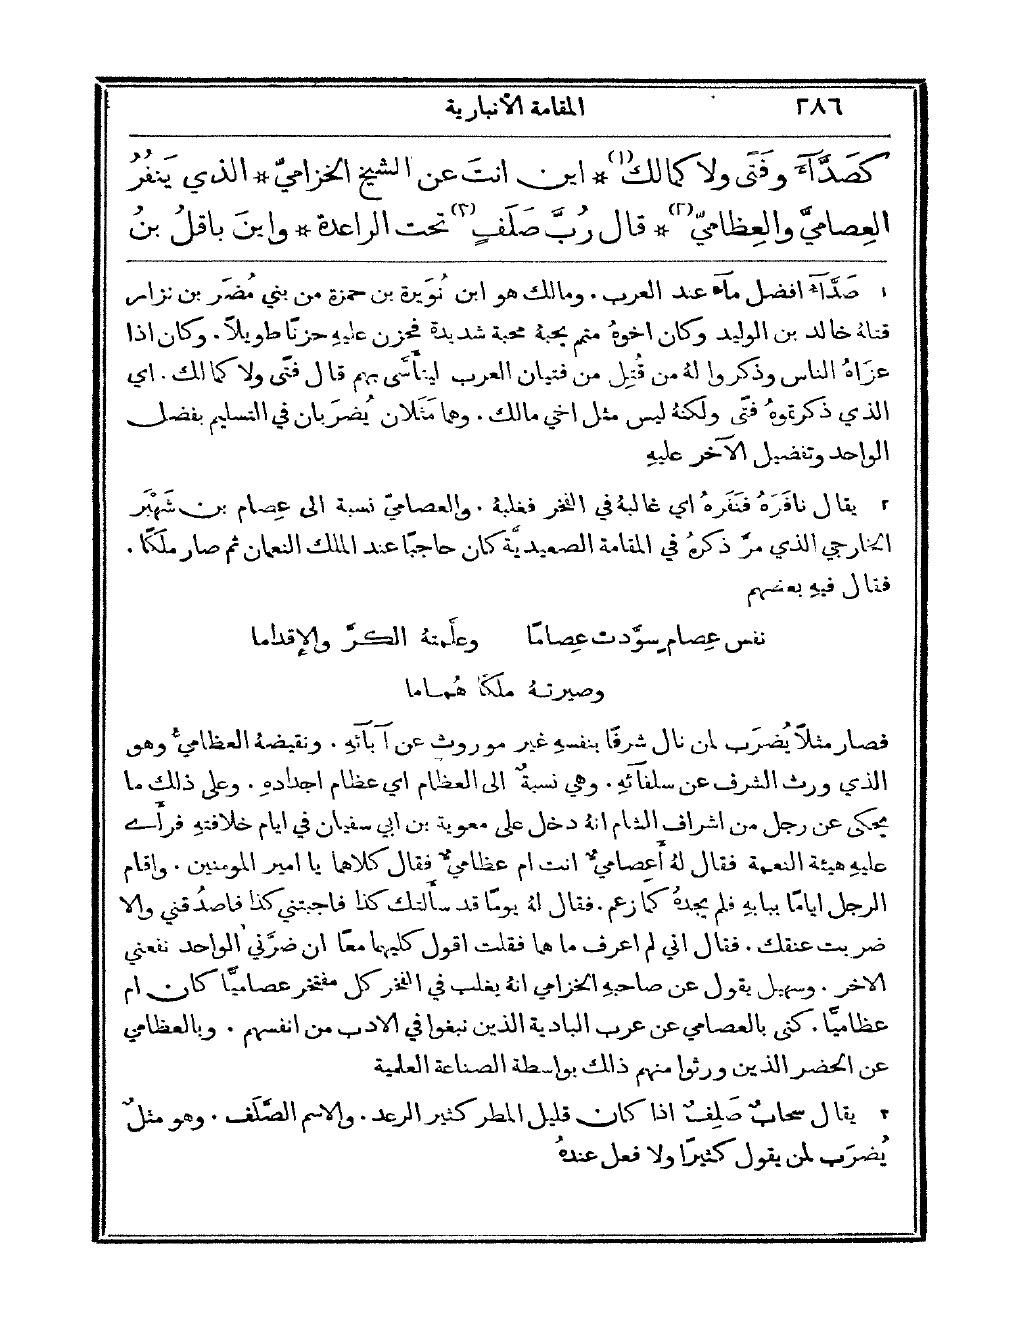 ٢٨٦ المقامة الأنبارية
كصَدَّآءَ وفَتًى ولا كمالك(١)* اين انتَ عن الشيخ الخزاميّ* الذي يَنفُرُ
العِصاميَّ والعِظاميّ(٢)* قال رُبَّ صَلَفٍ(٣) تحت الراعدة* واينَ باقلُ بنُ
١ صَدَّآءُ افضل مآءٍ عند العرب. ومالك هو ابن نُوَيرة بن حمزة من بني مُضَر بن نزار
قتلهُ خالد بن الوليد وكان اخوهُ متمم يحبهُ محبة شديدة فحزن عليهِ حزنًا طويلًا. وكان اذا
عزاهُ الناس وذكروا لهُ من قُتِل من فتيان العرب ليتأسَّى بهم قال فتًى ولا كمالك. اي
الذي ذكرتموهُ فتًى ولكنهُ ليس مثل اخي مالك. وهما مَثَلان يُضرَبان في التسليم بفضل
الواحد وتفضيل الآخر عليهِ
٢ يقال نافَرَهُ فنَفَرهُ اي غالبهُ في الفخر فغلبهُ. والعصاميّ نسبة الى عِصام بن شَهْبَر
الخارجي الذي مرَّ ذكرهُ في المقامة الصعيديَّة كان حاجبًا عند الملك النعمان ثم صار ملكًا.
فقال فيهِ بعضهم
نفس عِصامٍ سوَّدت عِصامًا وعلَّمتهُ الكرَّ والإقداما
وصيرتهُ ملكًا هُماما
فصار مثلًا يُضرَب لمن نال شرفًا بنفسهِ غير موروث عن آبآئهِ. ونقيضهُ العظاميُّ وهو
الذي ورث الشرف عن سلفآئهِ. وهي نسبةٌ الى العظام اي عظام اجدادهِ. وعلى ذلك ما
يحكى عن رجل من اشراف الشام انهُ دخل على معوية بن ابي سفيان في ايام خلافتهِ فرأَى
عليهِ هيئة النعمة فقال لهُ أَعِصاميٌّ انت ام عظاميٌّ فقال كلاهما يا امير المومنين. واقام
الرجل ايامًا ببابهِ فلم يجدهُ كما زعم. فقال لهُ يومًا قد سأَلتك كذا فاجبتني كذا فاصدُقني والا
ضربت عنقك. فقال اني لم اعرف ما هما فقلت اقول كليهما معًا ان ضرَّني الواحد نفعني
الاخر. وسهيل يقول عن صاحبهِ الخزامي انهُ يغلب في الفخر كل مفتخر عصاميًّا كان ام
عظاميًّا. كنى بالعصامي عن عرب البادية الذين نبغوا في الادب من انفسهم. وبالعظامي
عن الحضر الذين ورثوا منهم ذلك بواسطة الصناعة العلمية
٣ يقال سحابٌ صَلِفٌ اذا كان قليل المطر كثير الرعد. والاسم الصَّلَف. وهو مثلٌ
يُضرَب لمن يقول كثيرًا ولا فعل عندهُ